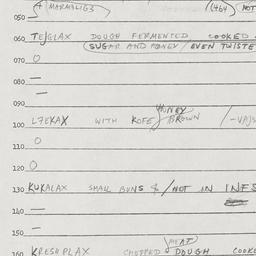 + MARMALIGS (464) NOT
050 —
060 TEJGLAX DOUGH FERMENTED COOKED
(SUGAR AND HONEY / EVEN TWISTE
070 O
080 —
—
090
HONEY
100 L7EKAX WITH KOFE BROWN /-VAJS
110 O
120 O
130 KUKALAX SMALL BUNS & / NOT IN INFS
140 —
150 —
MEAT
160 KRESHPLAX CHOPPED DOUGH COOKE